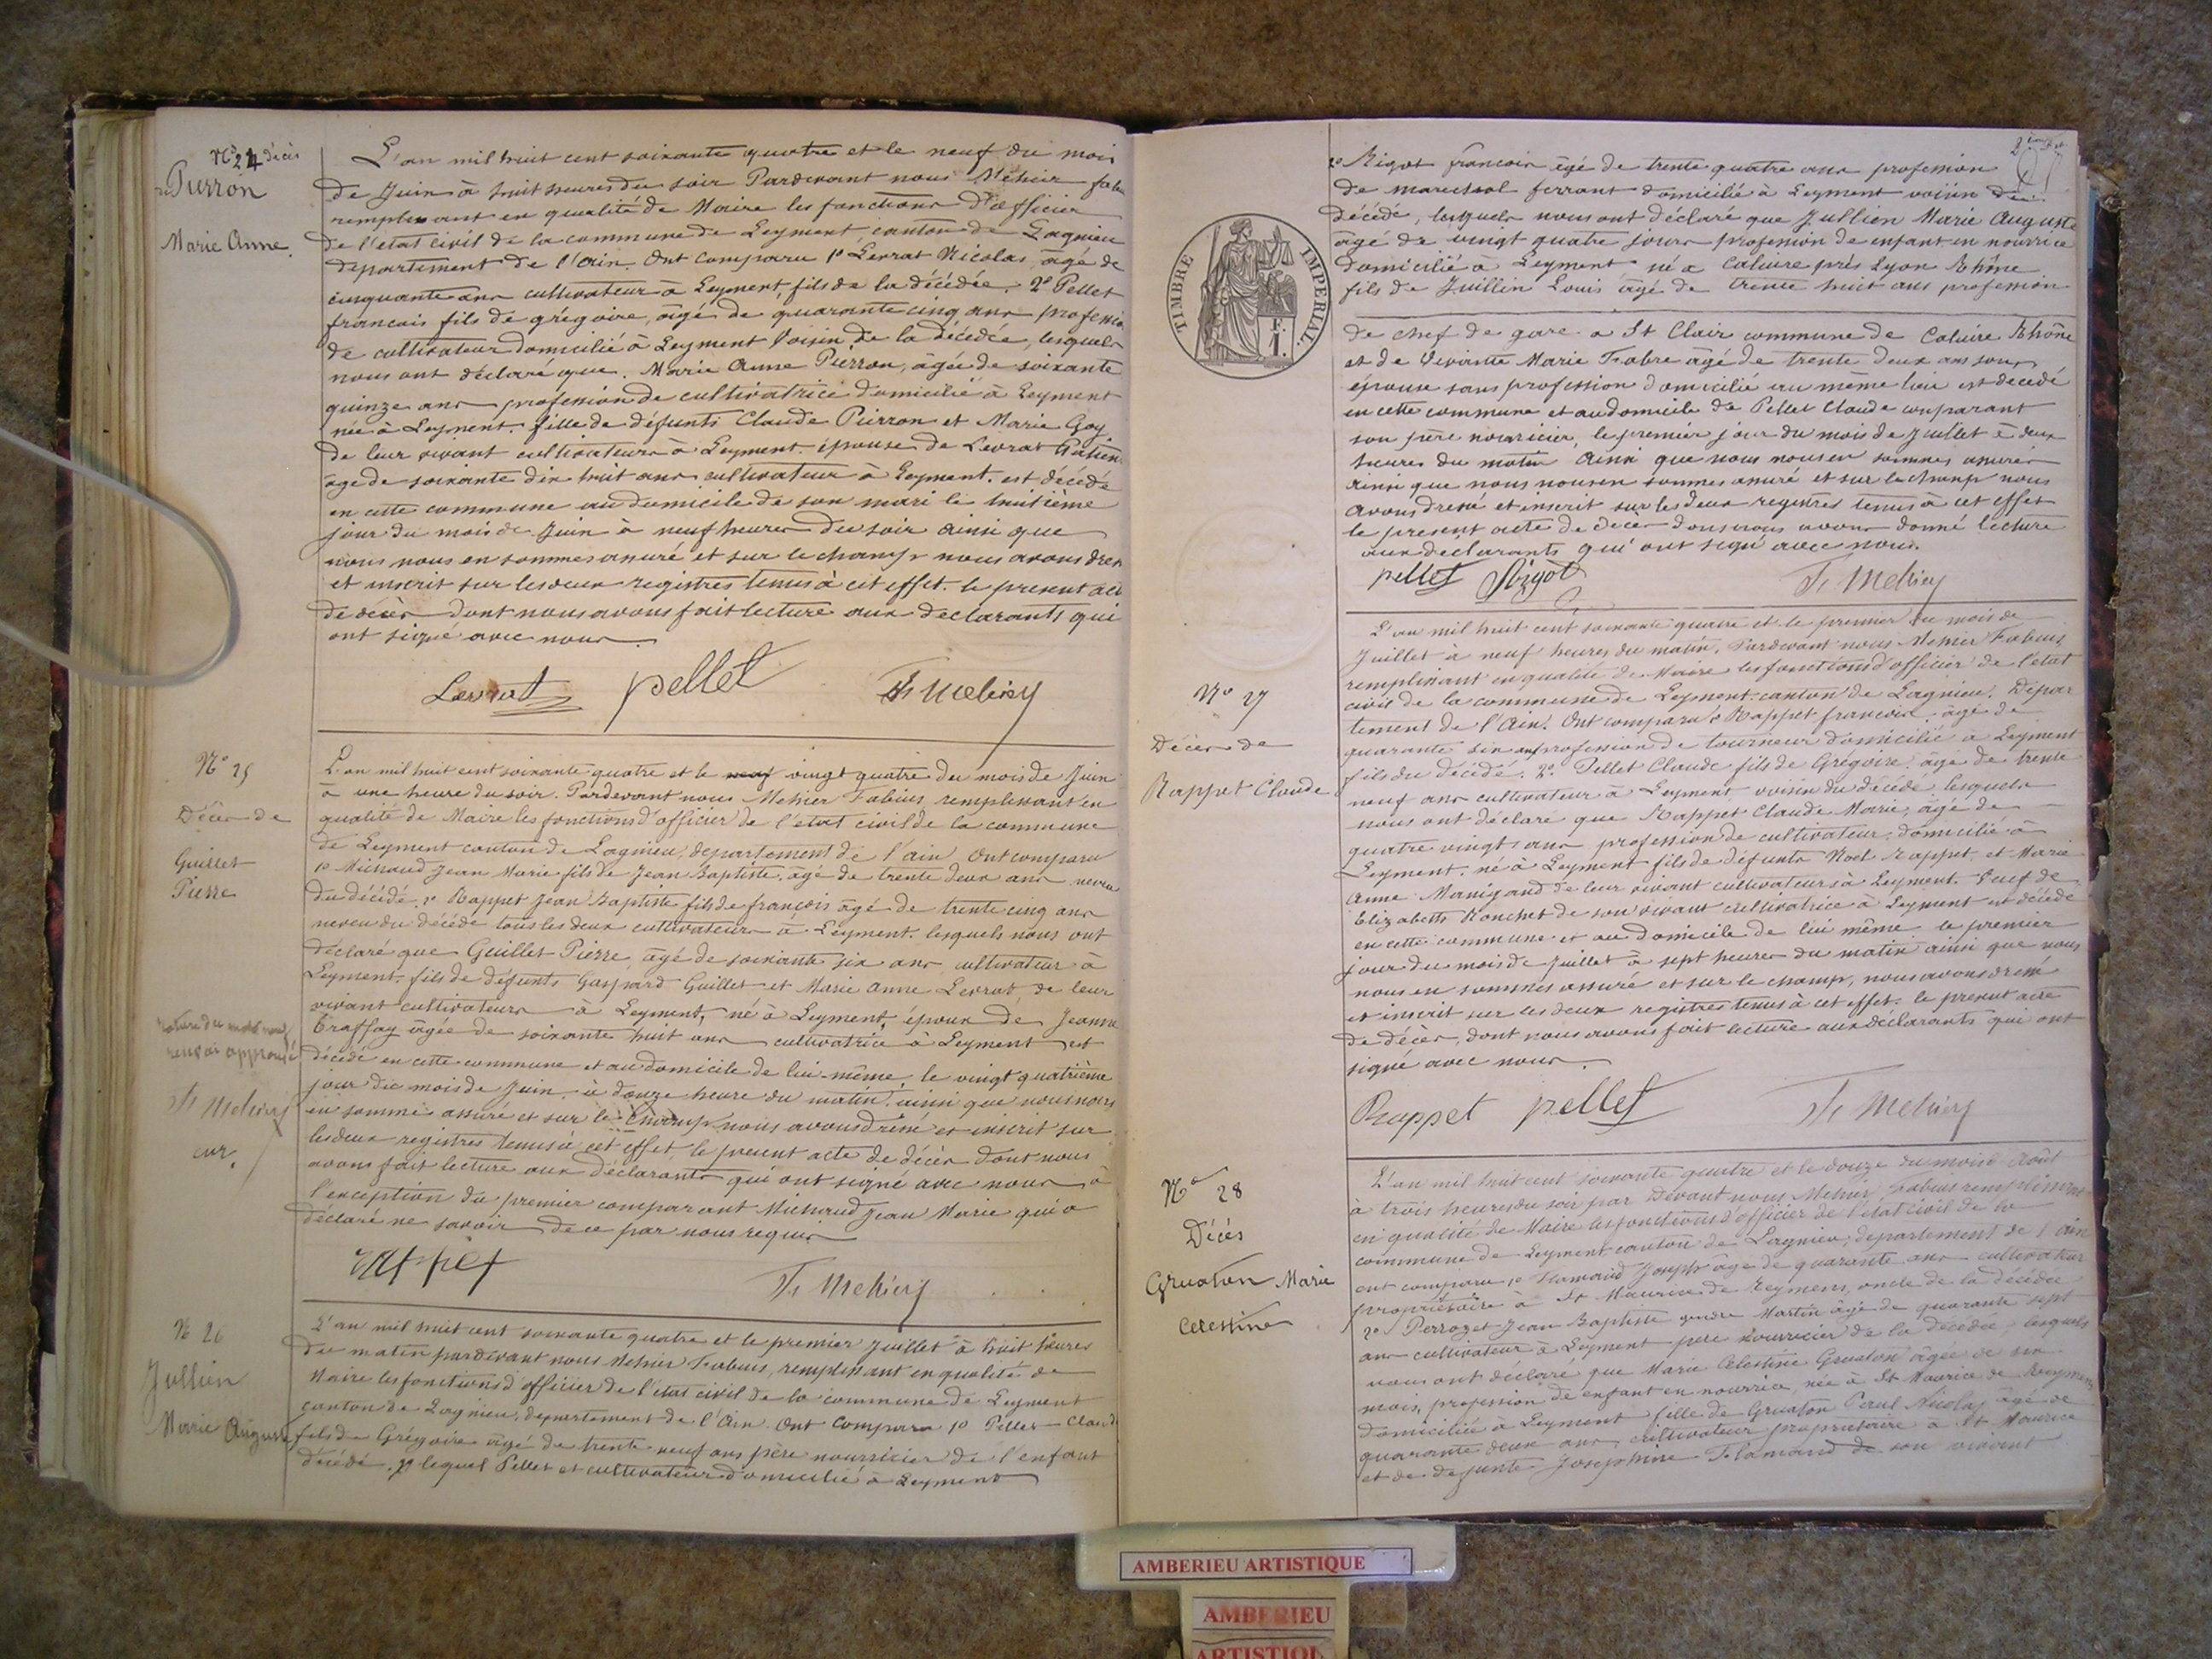 N° 24 décès
Pierron
Marie Anne.
L'an mil huit cent soixante quatre et le neuf du mois
de Juin à huit heures du soir Pardevant nous Méhier fabi
remplissant en qualité de Maire les fonctions d'officier
de l'état civil de la commune de Leyment canton de Lagnieu
département de l'ain. Ont comparu 1° Levrat Nicolas âgé de
cinquante ans cultivateur à Leyment, fils de la décédée. 2° Pellet
francois fils de grégoire, âgé de quarante cinq ans professio
de cultivateur domicilié à Leyment Voisin de la décédée, lesquels
nous ont déclaré que. Marie Anne Pierron, âgée de soixante
quinze ans profession de cultivatrice domicilié à Leyment
née à Leyment. fille de défunts Claude Pierron et Marie Goy
de leur vivant cultivateurs à Leyment. épouse de Levrat
âgé de soixante dix huit ans cultivateur à Leyment. est décédé
en cette commune au domicile de son mari le huitième
jour du mois de Juin à neuf heures du soir ainsi que
nous nous en sommes assuré et sur le champ nous avons dres
et inscrit sur les deux registres tenus à cet effet. le présent act
de décès dont nous avons fait lecture aux declarants qui
ont signé avec nous.
Levrat pellet F. Mehier
N° 25
Décès de
Guillet
Pierre
L'an mil huit cent soixante quatre et le neuf vingt quatre du mois de Juin
à une heure du soir. Pardevant nous Mehier Fabius remplissant en
qualité de Maire les fonctions d'officier de l'état civil de la commune
de Leyment canton de Lagnieu, département de l'ain Ont comparu
1° Michaud Jean Marie fils de Jean Baptiste, âgé de trente deux ans neveu
du décédé, 2° Rappet Jean Baptiste fils de francois âgé de trente cinq ans
neveu du décédé tous les deux cultivateurs à Leyment. lesquels nous ont
déclaré que Guillet Pierre, âgé de soixante six ans cultivateur à
Leyment, fils de défunts Gaspard Guillet et Marie Anne Levrat, de leur
vivant cultivateurs à Leyment, né à Leyment, époux de Jeanne
Traffay âgée de soixante huit ans cultivatrice à Leyment est
décédé en cette commune et au domicile de lui-même, le vingt quatrième
jour du mois de Juin à douze heure du matin, ainsi que nous nous
en sommes assuré et sur le champ nous avons dressé et inscrit sur
les deux registres tenus à cet effet, le présent acte de décès dont nous
avons fait lecture aux déclarants qui ont signé avec nous à
l'exception du premier comparant Michaud Jean Marie qui a
déclaré ne savoir de ce par nous requis
rature du mot neuf
renvoi approuvé
F. Mehier
Rappet F. Mehier
N 26
Jullien
Marie Auguste
L'an mil huit cent soixante quatre et le premier Juillet à huit heures
du matin pardevant nous Mehier Fabius, remplissant en qualité de
Maire les fonctions d'officier de l'état civil de la commune de Leyment
canton de Lagnieu, département de l'Ain. Ont comparu 1° Pellet Claude
fils de Grégoire âgé de trente neuf ans père nourricier de l'enfant
décédé. lequel Pellet et cultivateur domicilié à Leyment
2° Rigot francois âgé de trente quatre ans profession
de marechal ferrant domicilié à Leyment voisin du
décédé, lesquels nous ont déclaré que Jullien Marie Auguste
âgé de vingt quatre jours profession de enfant en nourrice
domicilié à Leyment né à Caluire près Lyon Rhône
fils de Juillin Louis âgé de trente huit ans profession
TIMBRE IMPERIAL.
F.
1.
de chef de gare à St Clair commune de Caluire Rhône
et de Marie Fabre âgé de trente deux ans son
épouse sans profession domicilié au même lieu est decédé
en cette commune et au domicile de Pellet Claude comparant
son père nourricier, le premier jour du mois de Juillet à deux
heures du matin Ainsi que nous nous en sommes assurés
Ainsi que nous nous en sommes assuré et sur le champ nous
avons dressé et inscrit sur les deux registres tenus à cet effet
le present acte de décès dont nous avons donné lecture
aux declarants qui ont signé avec nous.
pellet Rigot F. Mehier
N° 27
Décès de
Rappet Claude
L'an mil huit cent soixante quatre et le premier du mois de
Juillet à neuf heures du matin. Pardevant nous Mehier Fabius
remplissant en qualité de Maire les fonctions d'officier de l'état
civil de la commune de Leyment. canton de Lagnieu. Dépar
tement de l'Ain. Ont comparu Rappet francois. âgé de
quarante six ans profession de tourneur domicilié à Leyment
fils du décédé. 2° Pellet Claude fils de Grégoire. âgé de trente
neuf ans cultivateur à Leyment voisin du décédé, lesquels
nous ont déclaré que Rappet Claude Marie, âgé de
quatre vingts ans profession de cultivateur, domicilié à
Leyment, né à Leyment fils de défunts Noel Rappet et Marie
Anne Manigand de leur vivant cultivateurs à Leyment. Veuf de
Elizabeth Ronchet de son vivant cultivatrice à Leyment est décédé
en cette commune et au domicile de lui même le premier
jour du mois de Juillet à sept heures du matin ainsi que nous
nous en sommes assuré et sur le champ, nous avons dressé
et inscrit sur les deux registres tenus à cet effet. le présent acte
de décès, dont nous avons fait lecture aux déclarants qui ont
signé avec nous.
Rappet pellet F. Mehier
N° 28
Décès
Gruaton Marie
Celestine
L'an mil huit cent soixante quatre et le douze du mois d'Août
à trois heures du soir par devant nous Mehier Fabius remplissant
en qualité de Maire les fonctions d'officier de l'état civil de la
commune de Leyment canton de Lagnieu, département de l'ain
ont comparu 1° Flamand Joseph âgé de quarante ans cultivateur
propriétaire à St Maurice de Reymens, oncle de la décédée
2° Perrozet Jean Baptiste gendre Martin âgé de quarante sept
ans cultivateur à Leyment père nourricier de la décédée lesquels
nous ont déclaré que Marie Celestine Gruaton âgée de six
mois, profession de enfant en nourrice, née à St Maurice de Reymens
domiciliée à Leyment fille de Gruaton Paul Nicolas âgé de
quarante deux ans, cultivateur propriétaire à St Maurice
et de defunte Josephine Flamand de son vivant
AMBERIEU ARTISTIQUE
AMBERIEU
ARTISTIQ